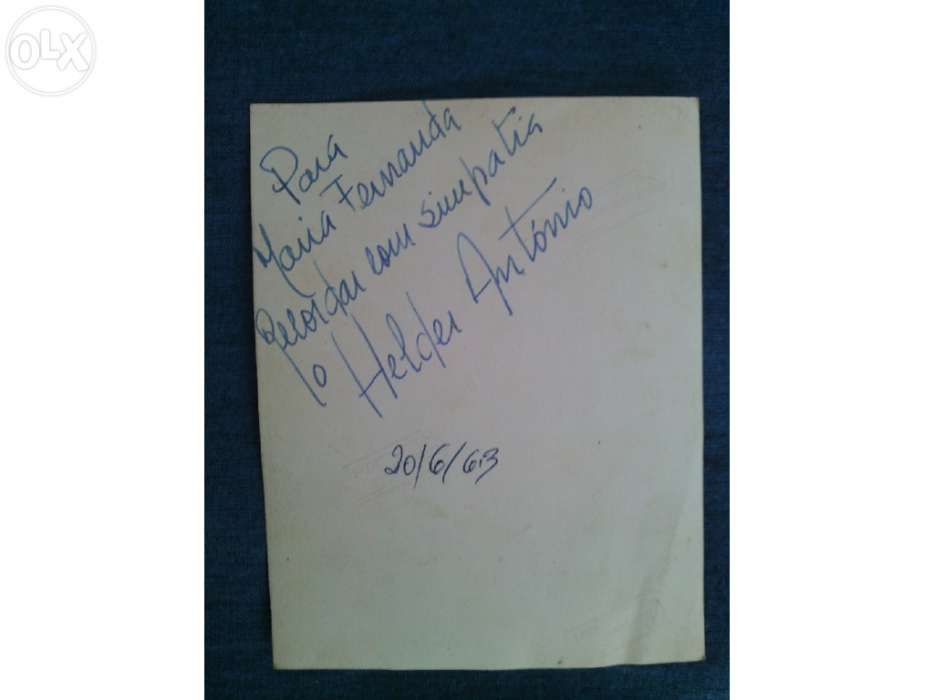 OLX
Para
Maria Fernanda
Recordar com simpatia
o Helder António
20/6/63